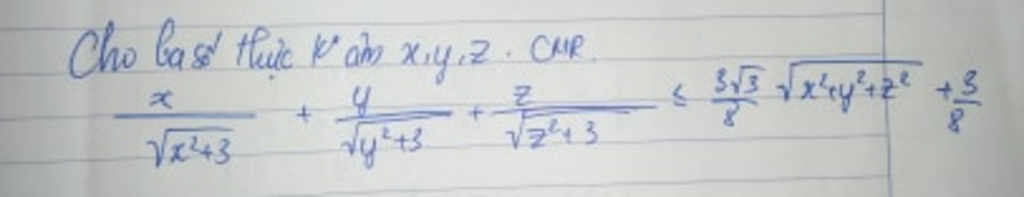 Cho ba số thực k° âm x,y,z. CMR.
x/√(x²+3) + y/√(y²+3) + z/√(z²+3) ≤ 3√3/8 √(x²+y²+z²) + 3/8